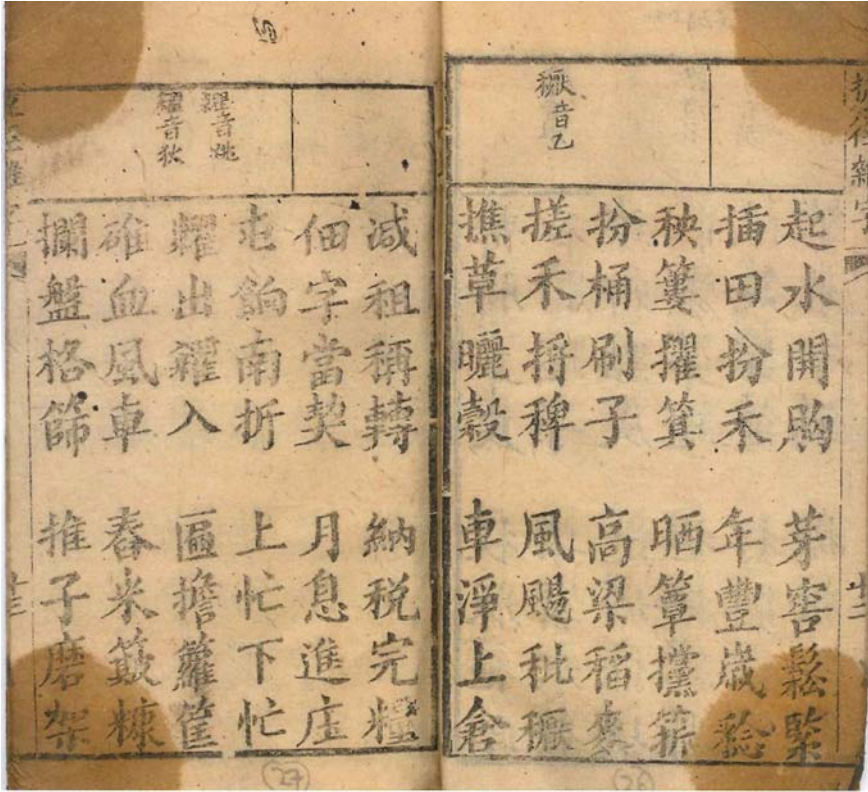 雜字
𥢶音乙
起水開𦚾 芽窖鬆緊
插田扮禾 年豐歲稔
秧簍擢箕 晒簟攩箉
扮桶刷子 高梁稻麥
搓禾捋稗 風颺秕𥢶
撨草曬穀 車淨上倉
廿二
糶音桃
糴音狄
减祖稱轉 納税完糧
佃字當契 月息進庄
屯餉南折 上忙下忙
糶出糴入 匾擔籮筐
碓血風車 舂米簸糠
攔盤格篩 推子磨架
廿三
26
27